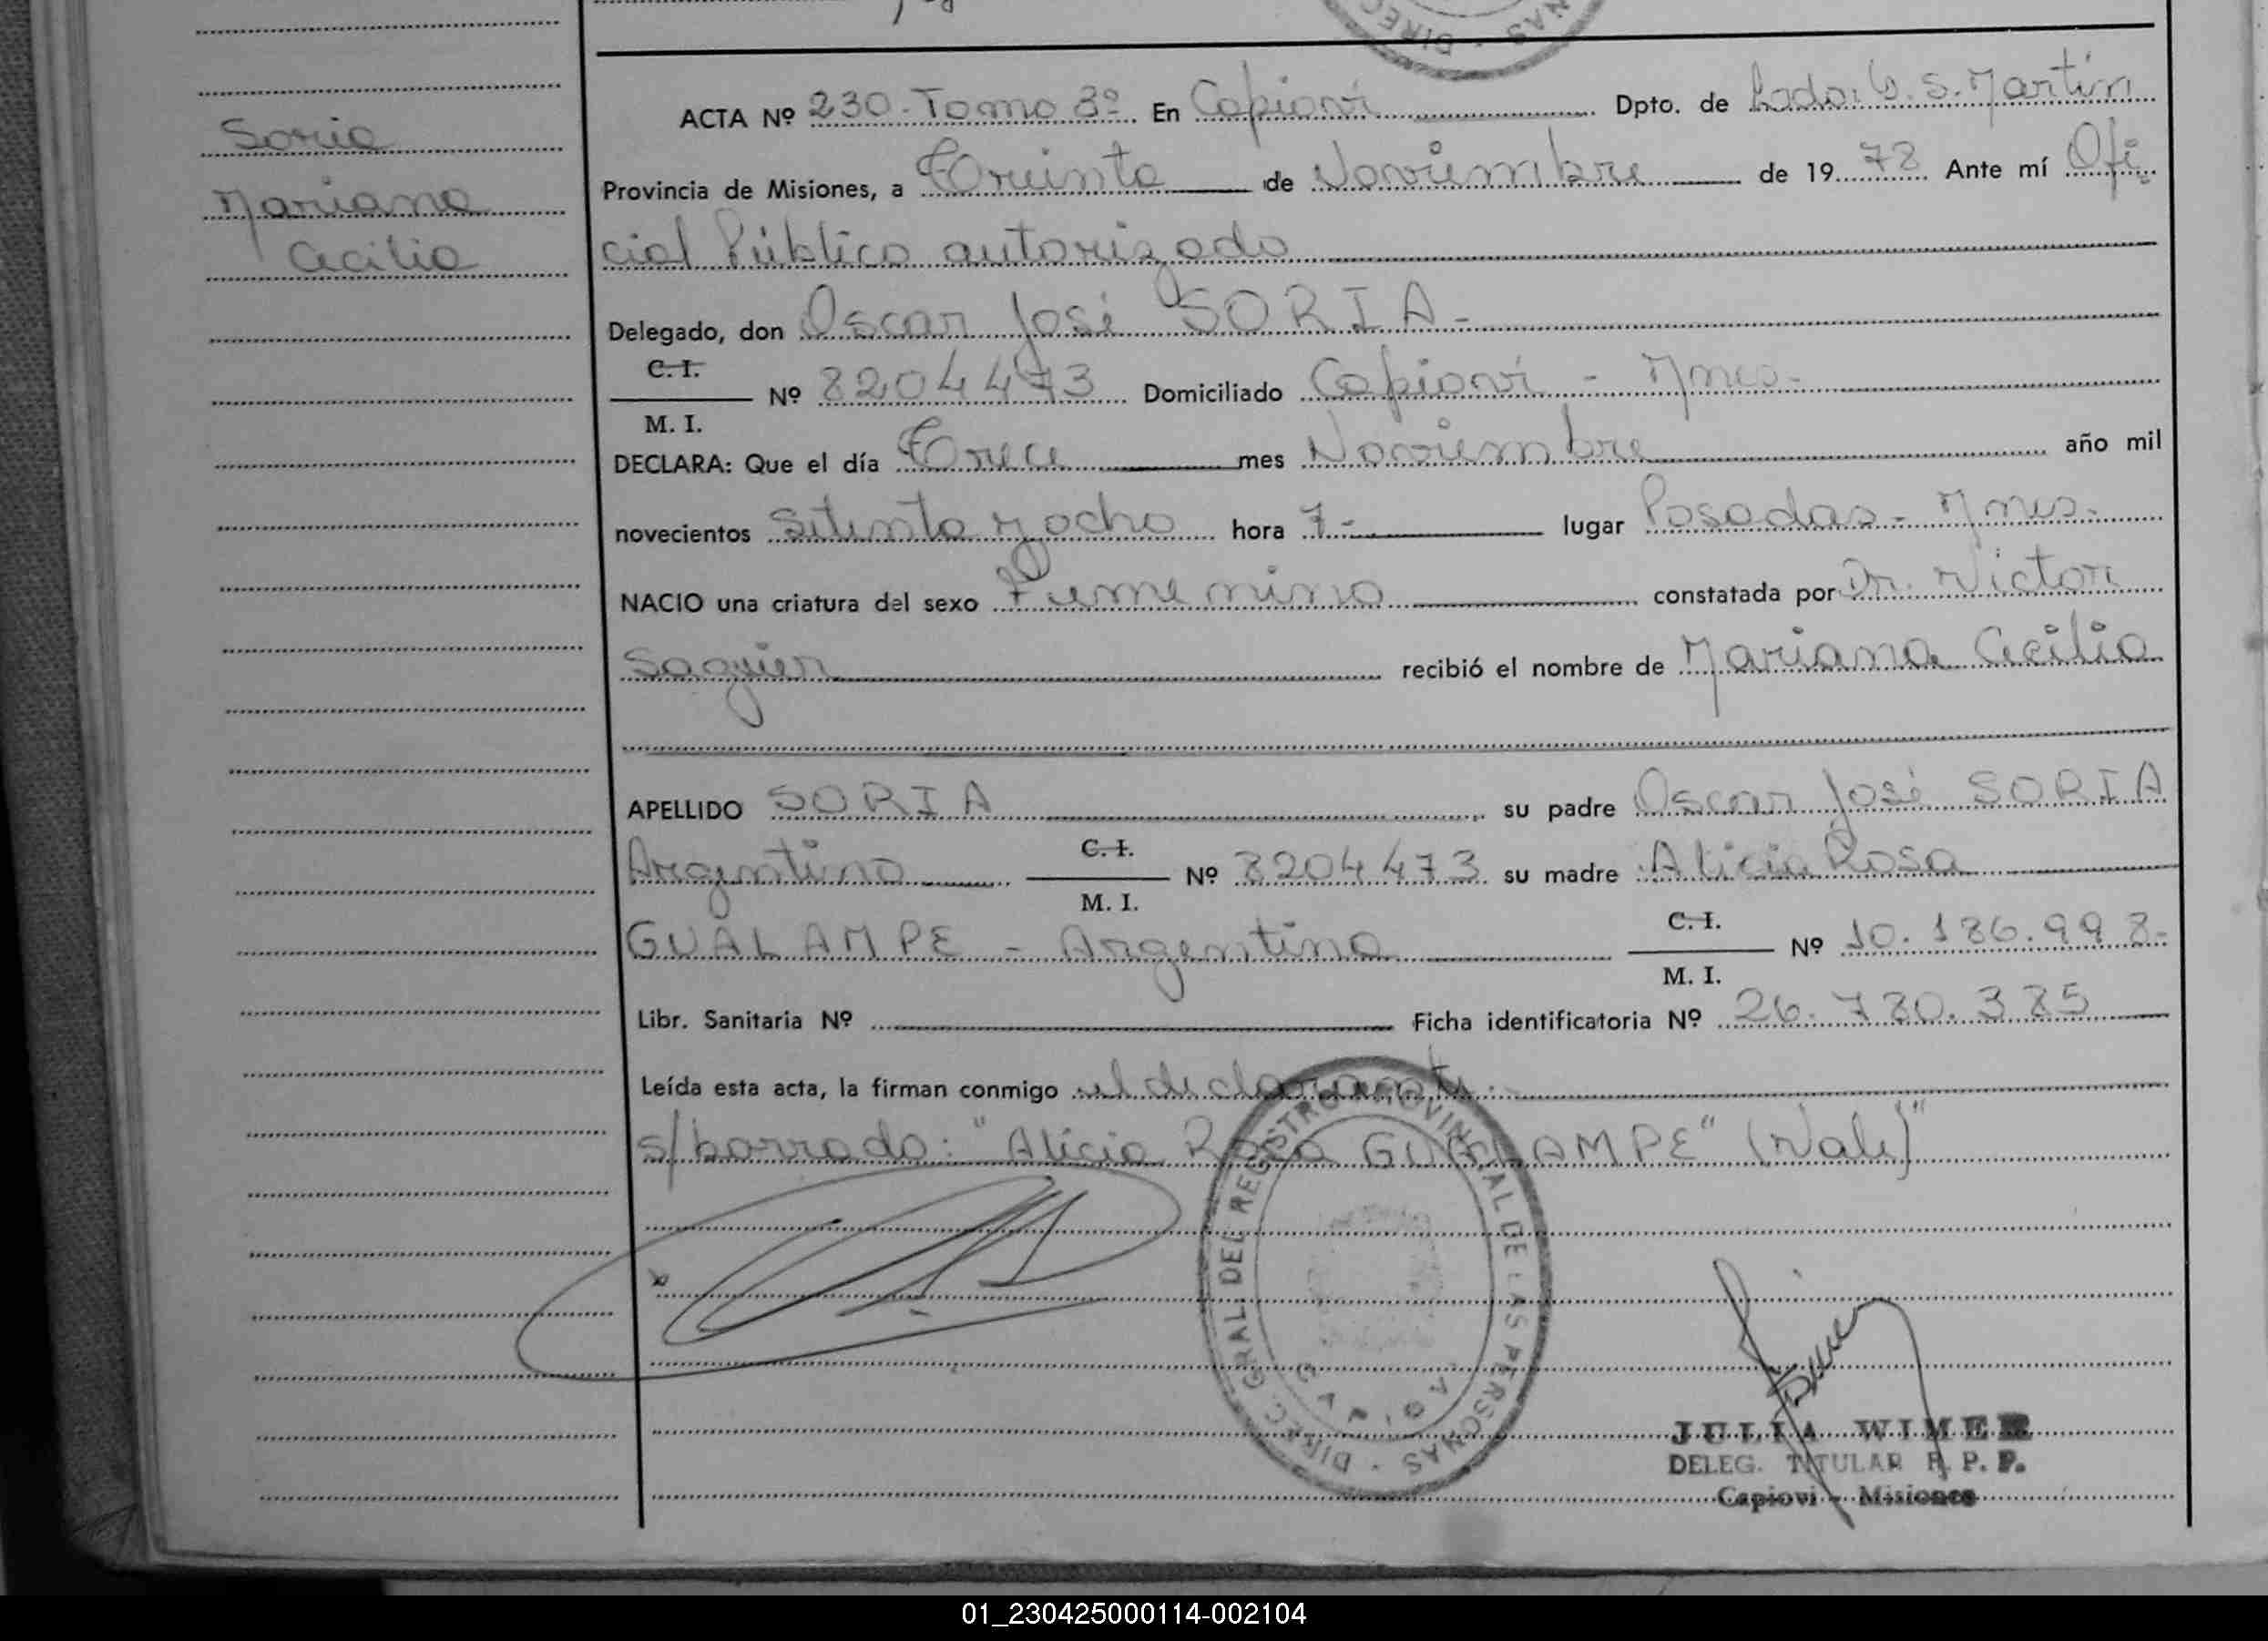 Soria
Mariana
Cecilia
ACTA Nº 230. Tomo 3º En Capioví Dpto. de Ldor. G. S. Martín
Provincia de Misiones, a Treinta de Noviembre de 1978 Ante mí Ofi
cial Público autorizado
Delegado, don Oscar José SORIA -
C. I.
M. I. Nº 8204473 Domiciliado Capioví - Mnes.
DECLARA: Que el día Trece mes Noviembre año mil
novecientos setenta y ocho hora 7- lugar Posadas - Mnes.
NACIO una criatura del sexo Femenino constatada por Dr. Victor
Saguier recibió el nombre de Mariana Cecilia
APELLIDO SORIA su padre Oscar José SORIA
Argentino C. I. M. I. Nº 8204473 su madre Alicia Rosa
GUALAMPE - Argentina C. I. M. I. Nº 10.186.998-
Libr. Sanitaria Nº Ficha identificatoria Nº 26.780.385
Leída esta acta, la firman conmigo el declarante.-
s/borrado: "Alicia Rosa GUALAMPE" (Vale)"
DIREC. GRAL. DEL REGISTRO PROVINCIAL DE LAS PERSONAS
JULIA WIMER
DELEG. TITULAR R. P. P.
Capiovi - Misiones
01_230425000114-002104